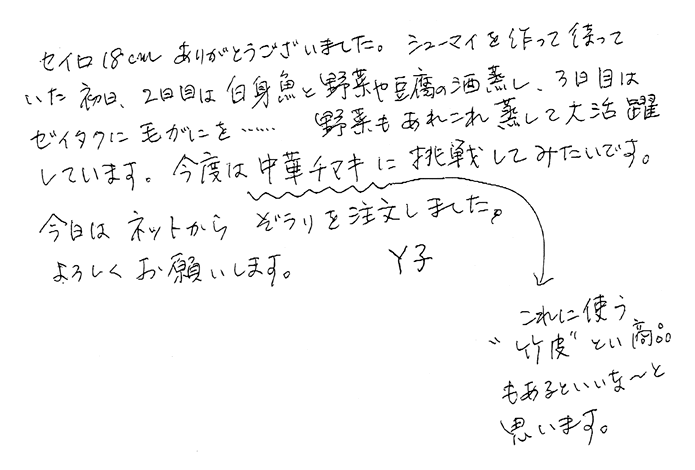 セイロ18cmありがとうございました。シューマイを作って待って
いた初日、2日目は白身魚と野菜や豆腐の酒蒸し、3日目は
ゼイタクに毛がにを…… 野菜もあれこれ蒸して大活躍
しています。今度は中華チマキに挑戦してみたいです。
今日はネットから ぞうりを注文しました。
よろしくお願いします。 Y子
これに使う
“竹皮”とい商品
もあるといいな〜と
思います。